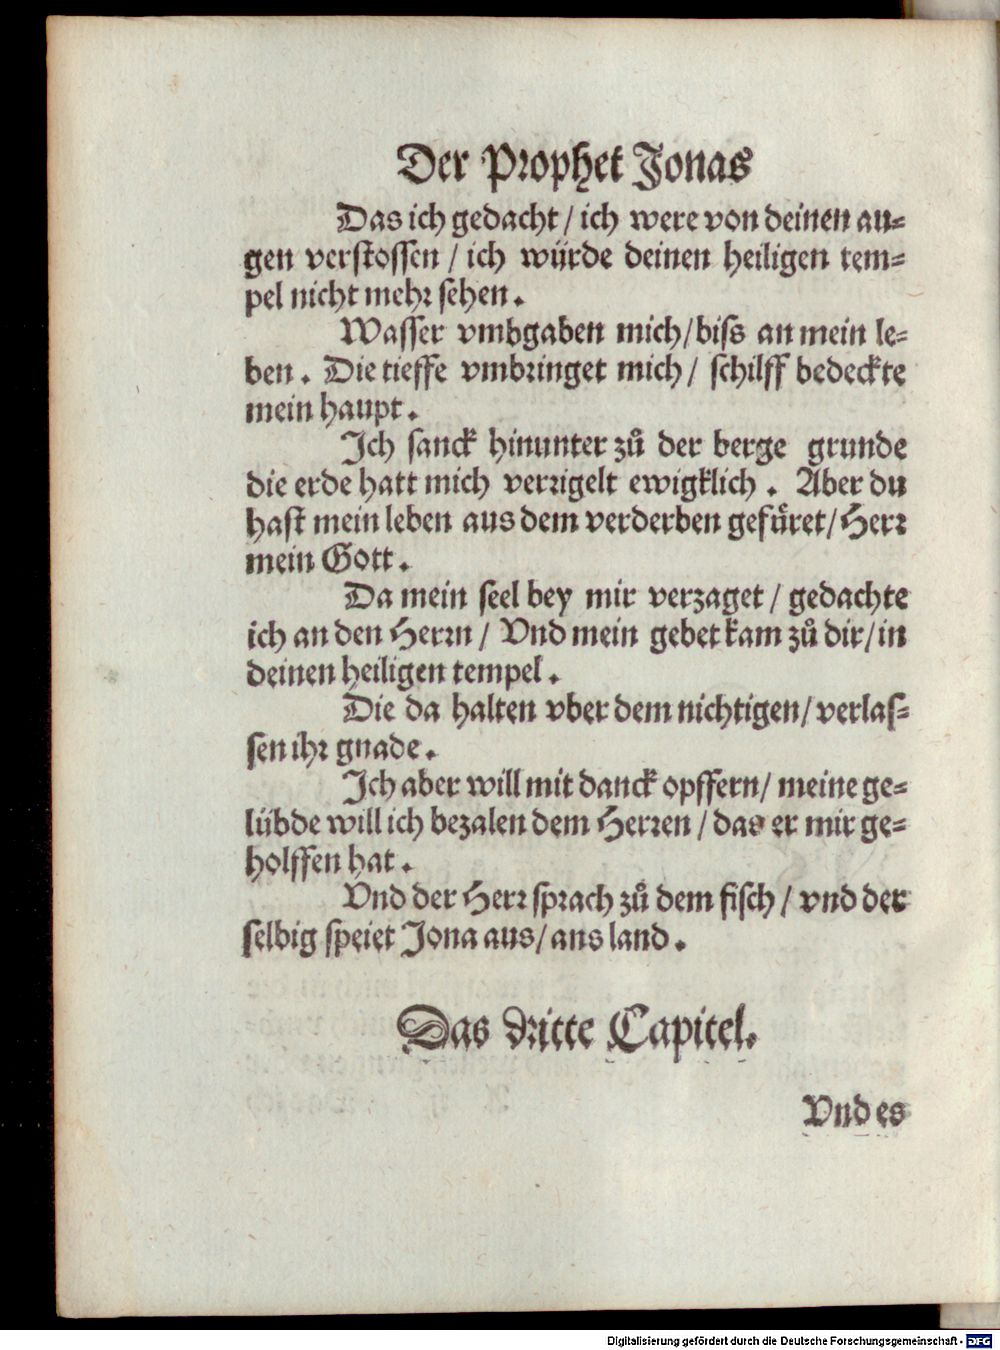 Der Prophet Jonas
Das ich gedacht / ich were von deinen au⸗
gen verstossen / ich würde deinen heiligen tem⸗
pel nicht mehr sehen.
Wasser vmbgaben mich/biss an mein le⸗
ben. Die tieffe vmbringet mich / schilff bedeckte
mein haupt.
Ich sanck hinunter zů der berge grunde
die erde hatt mich verrigelt ewigklich. Aber du
hast mein leben aus dem verderben gefüret/ Herr
mein Gott.
Da mein seel bey mir verzaget / gedachte
ich an den Herrn / Vnd mein gebet kam zů dir/in
deinen heiligen tempel.
Die da halten vber dem nichtigen/ verlas⸗
sen ihr gnade.
Ich aber will mit danck opffern/ meine ge⸗
lübde will ich bezalen dem Herren / das er mir ge⸗
holffen hat.
Vnd der Herr sprach zů dem fisch / vnd der
selbig speiet Jona aus/ ans land.
Das dritte Capitel.
Vnd es
Digitalisierung gefördert durch die Deutsche Forschungsgemeinschaft - DFG